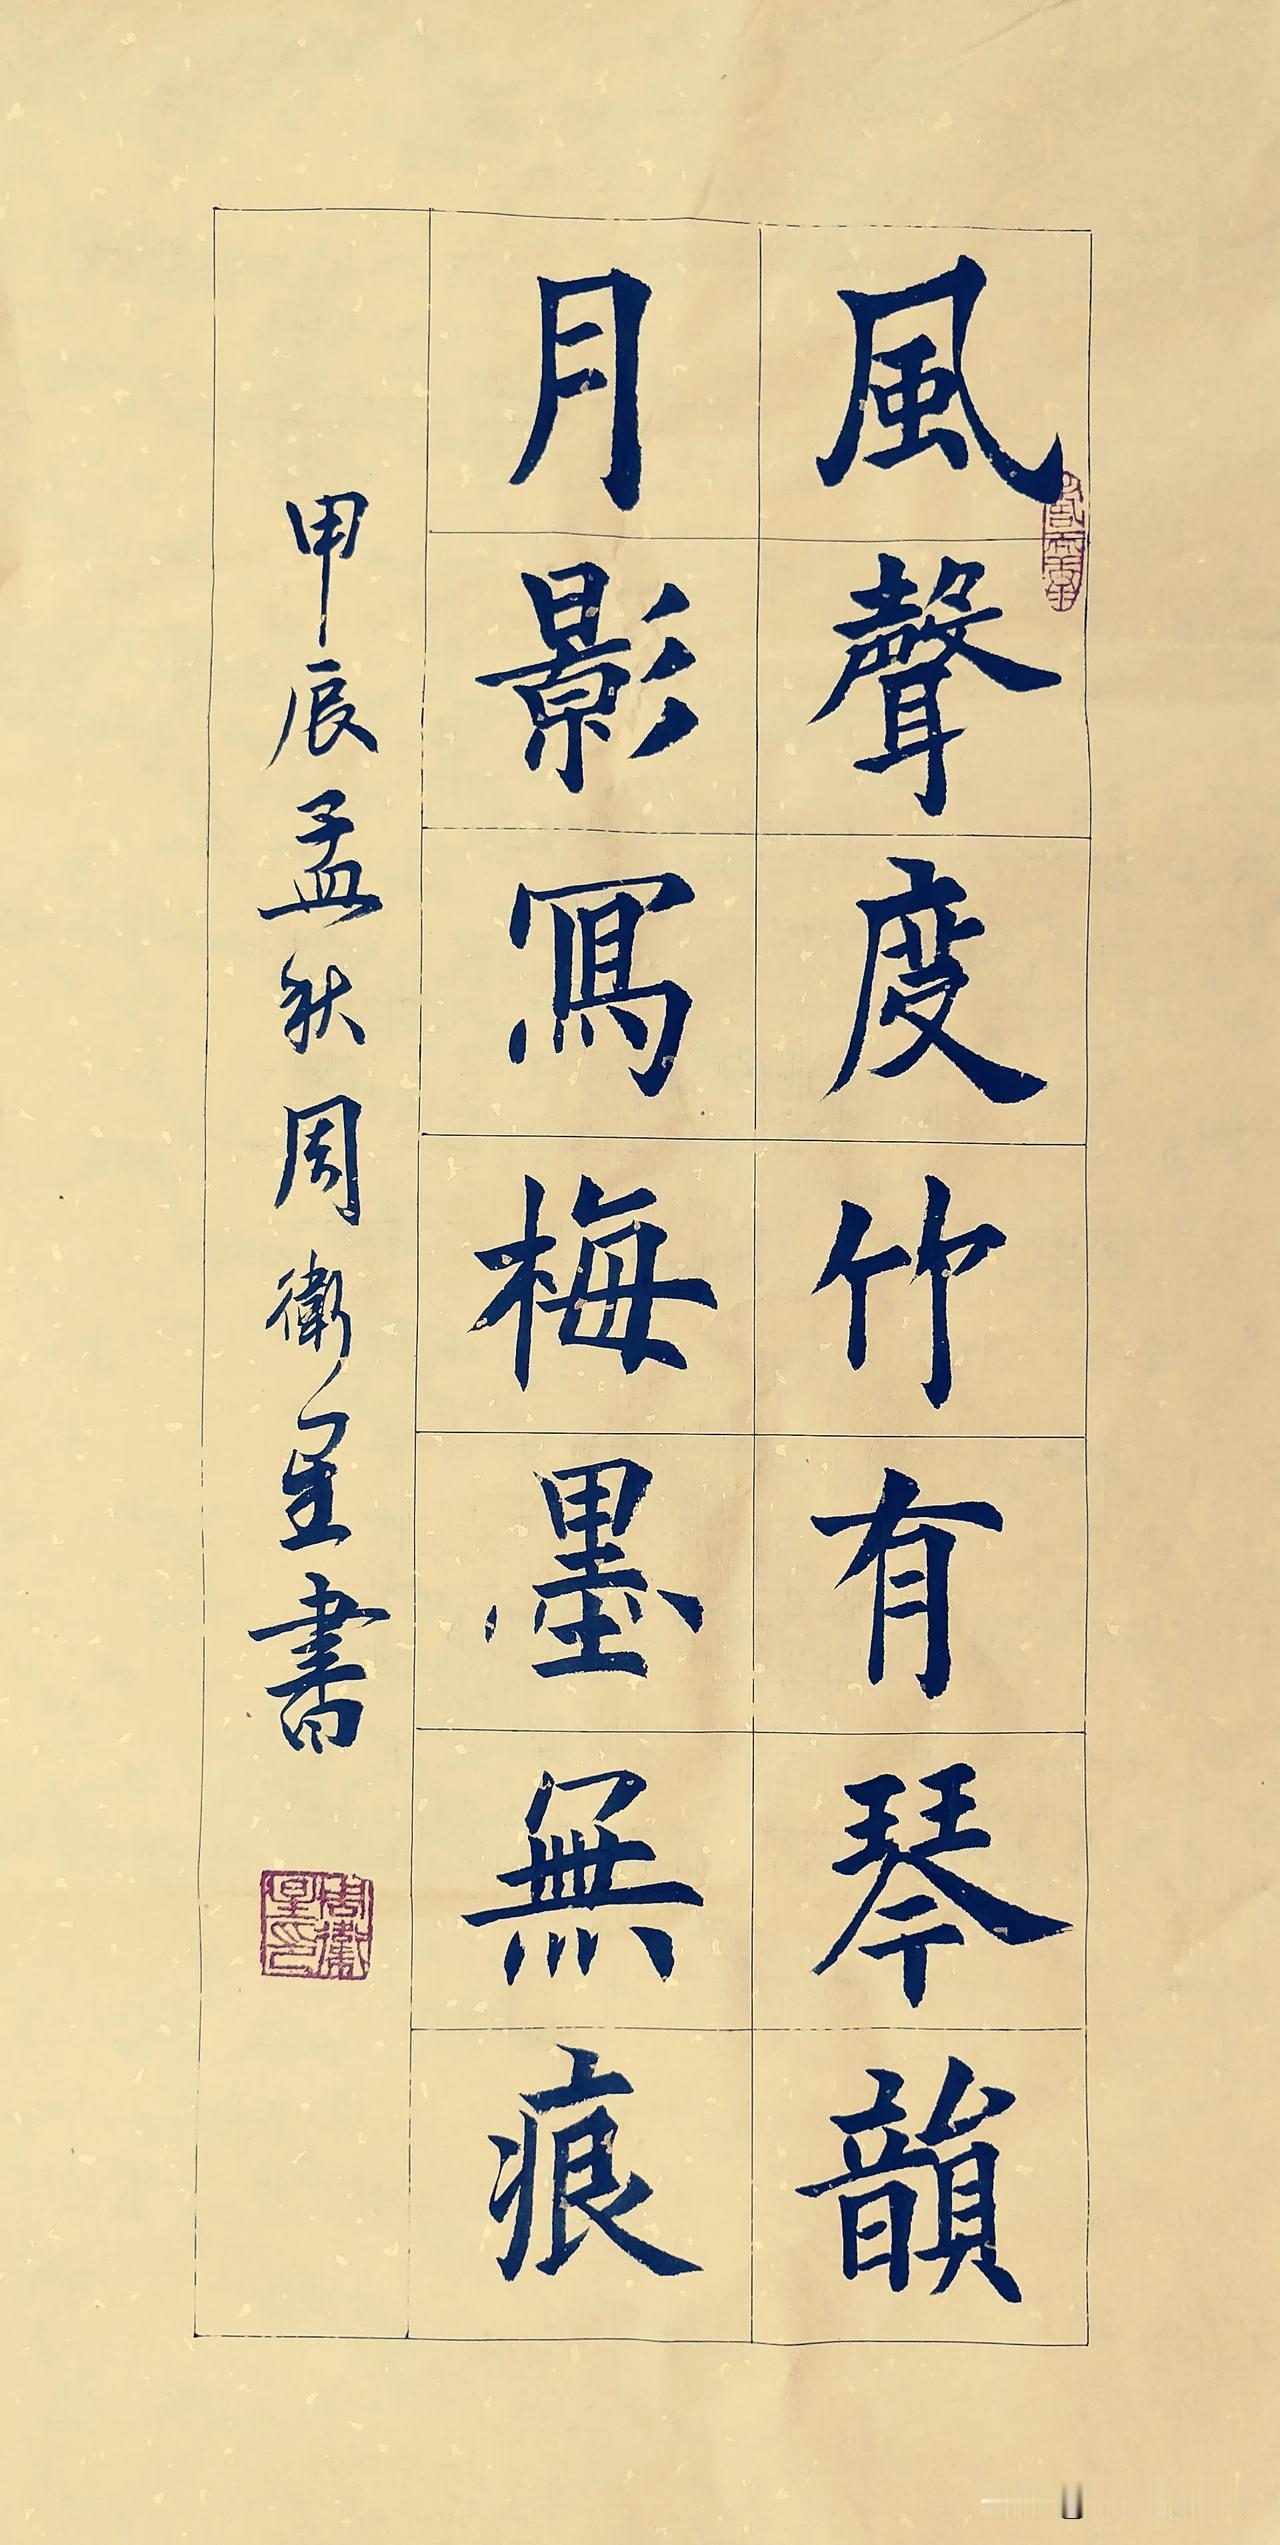 風聲度竹有琴韻
月影寫梅墨無痕
甲辰孟秋周衛星書
周衛星印